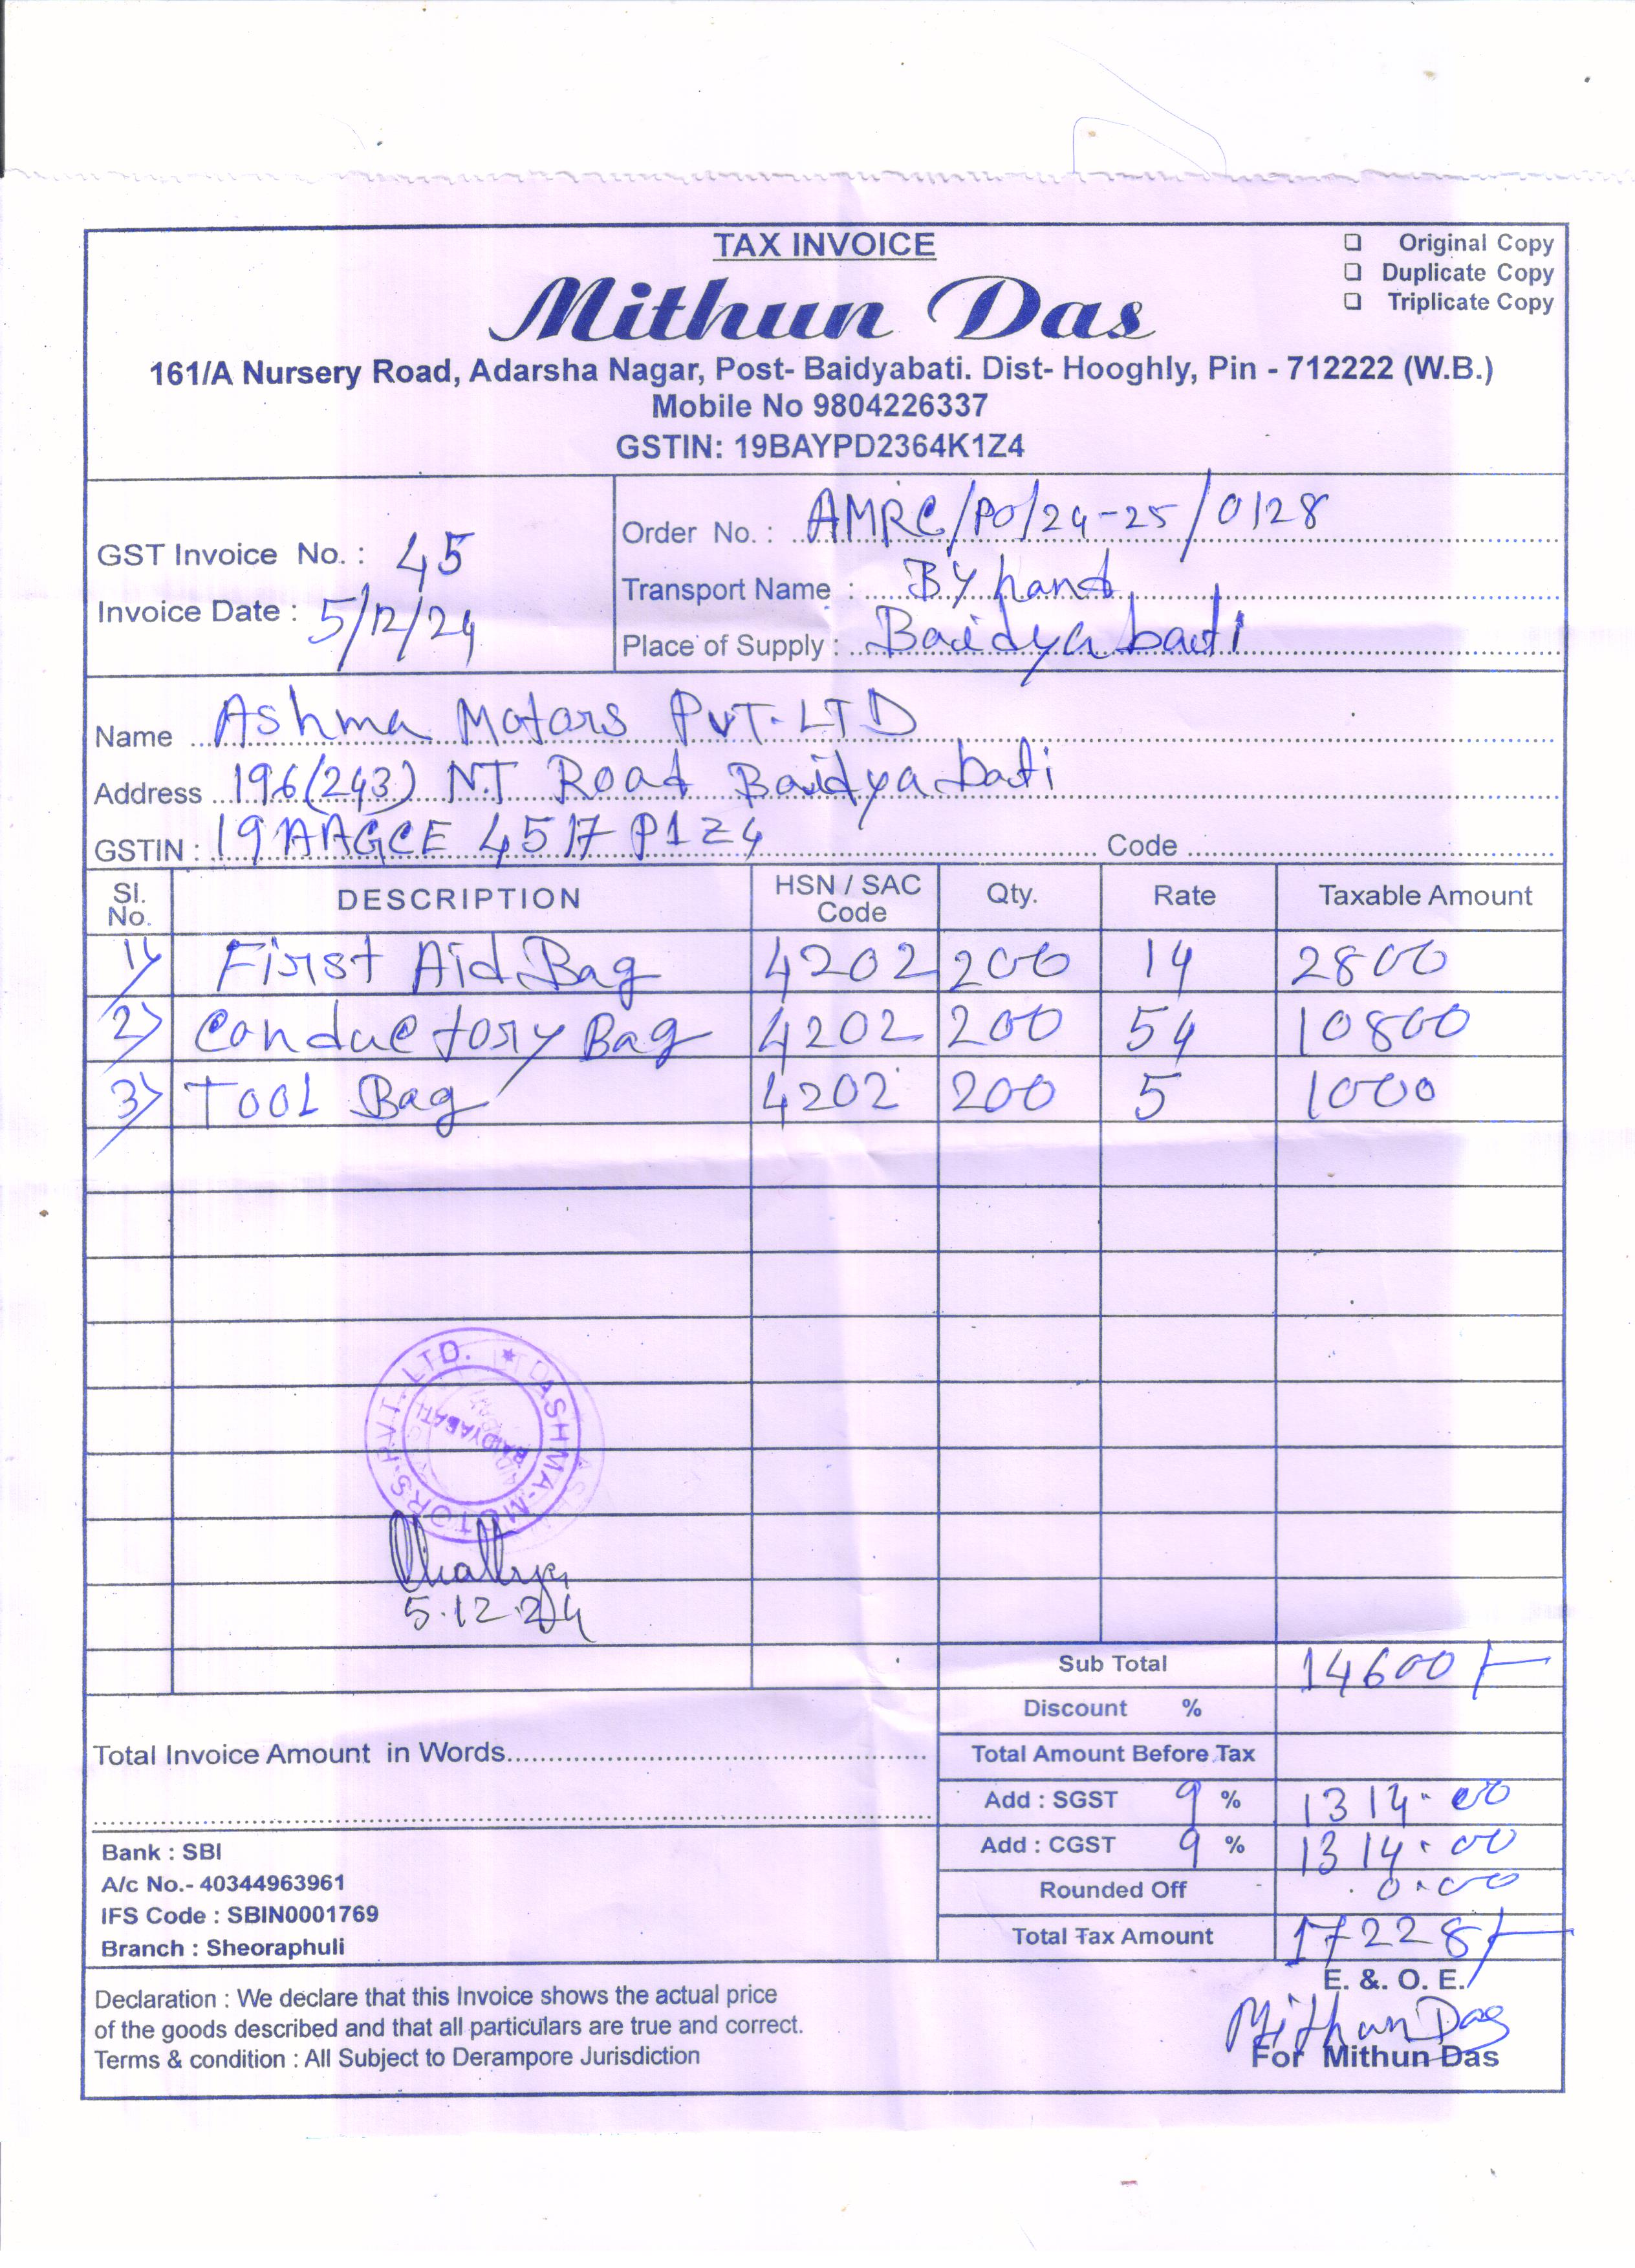 TAX INVOICE
Original Copy
Duplicate Copy
Triplicate Copy
Mithun Das
161/A Nursery Road, Adarsha Nagar, Post- Baidyabati. Dist- Hooghly, Pin - 712222 (W.B.)
Mobile No 9804226337
GSTIN: 19BAYPD2364K1Z4
GST Invoice No. : 45
Invoice Date : 5/12/24
Order No. : AMRC/PO/24-25/0128
Transport Name : By hand
Place of Supply : Baidyabati
Name Ashma Motors PVT. LTD
Address 196(243) N.T Road Baidyabati
GSTIN : 19AAGCE 4517 P1Z4 Code
Sl. No. DESCRIPTION HSN / SAC Code Qty. Rate Taxable Amount
1) First Aid Bag 4202 200 14 2800
2) Conductory Bag 4202 200 54 10800
3) TOOL Bag 4202 200 5 1000
ASHMA-MOTORS.PVT. LTD. ★
BAIDYABATI
5.12.24
Sub Total 14600/-
Discount %
Total Invoice Amount in Words
Total Amount Before Tax
Add : SGST 9 % 1314.00
Add : CGST 9 % 1314.00
Rounded Off 0.00
Total Tax Amount 17228/-
Bank : SBI
A/c No.- 40344963961
IFS Code : SBIN0001769
Branch : Sheoraphuli
E. &. O. E.
Declaration : We declare that this Invoice shows the actual price
of the goods described and that all particulars are true and correct.
Terms & condition : All Subject to Derampore Jurisdiction
Mithun Das
For Mithun Das